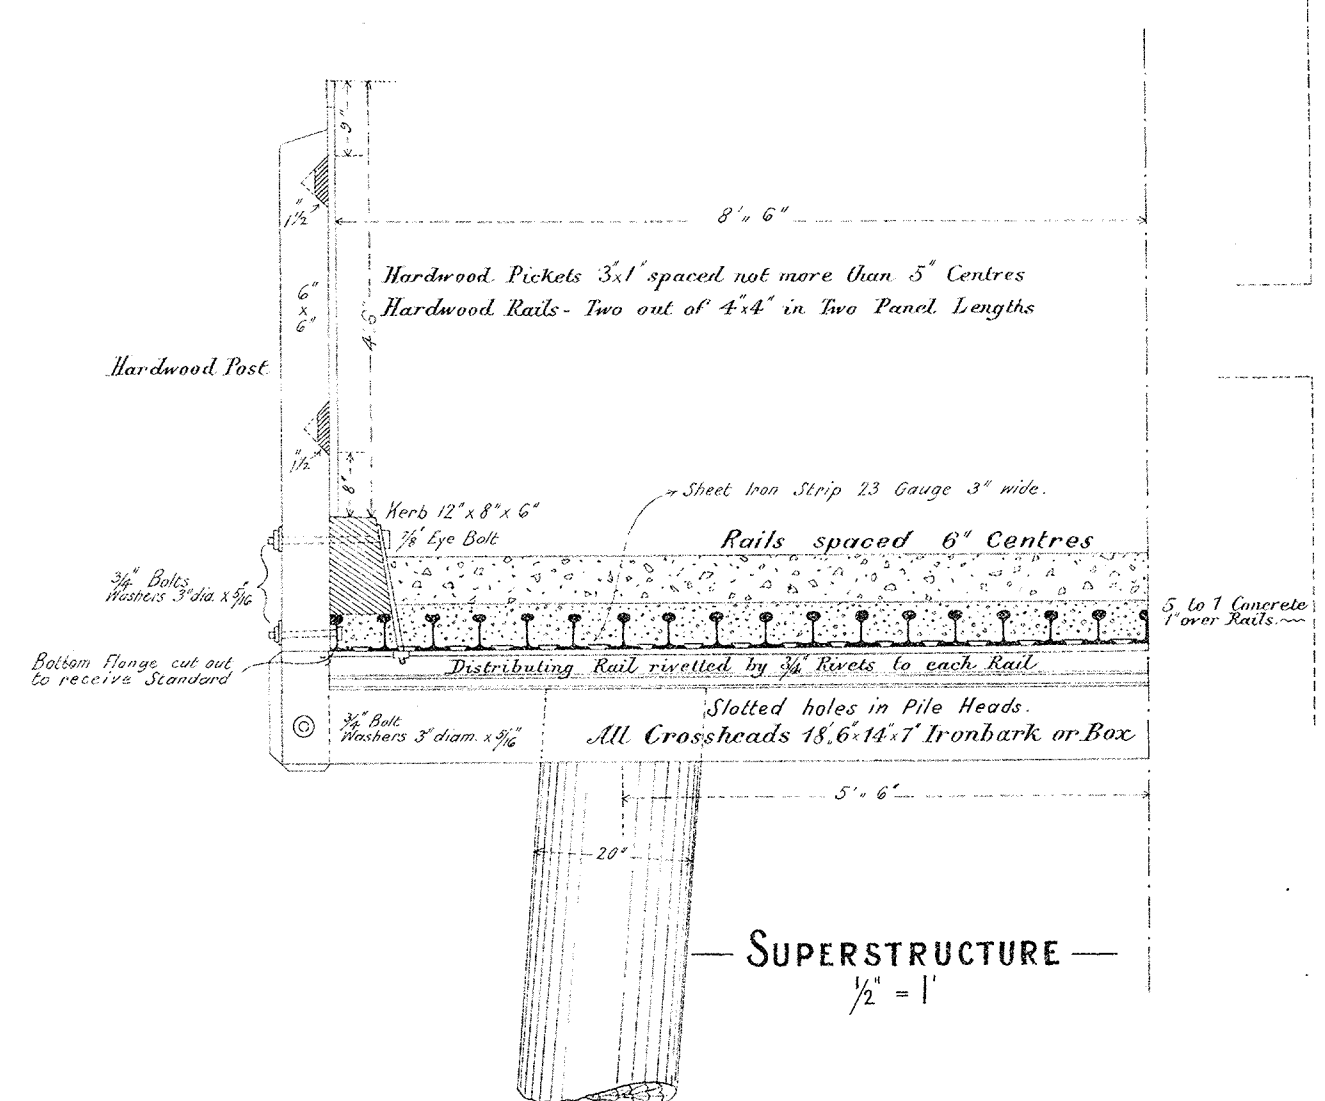 9"
1½"
8'„ 6"
Hardwood Pickets 3"x1" spaced not more than 5" Centres
6"
x
6"
Hardwood Rails - Two out of 4"x4" in Two Panel Lengths
4'6"
Hardwood Post
1½"
8"
Sheet Iron Strip 23 Gauge 3" wide.
Kerb 12" x 8" x 6"
⅞" Eye Bolt
Rails spaced 6" Centres
¾" Bolts
Washers 3" dia. x 5/16"
5 to 1 Concrete
1" over Rails.
Bottom flange cut out
to receive Standard
Distributing Rail rivetted by ¾" Rivets to each Rail
Slotted holes in Pile Heads.
¾" Bolt
Washers 3" diam. x 5/16"
All Crossheads 18'„6" x 14" x 7" Ironbark or Box
5'„ 6"
20"
SUPERSTRUCTURE
½" = 1'